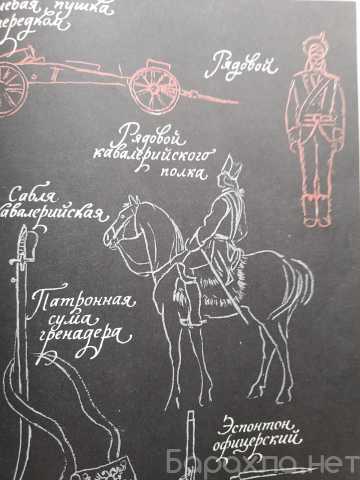 левая пушка
передком
Рядовой
Рядовой
кавалерийского
полка
Сабля
кавалерийская
Патронная
сума
гренадера
Эспонтон
офицерский
Барахло.нет